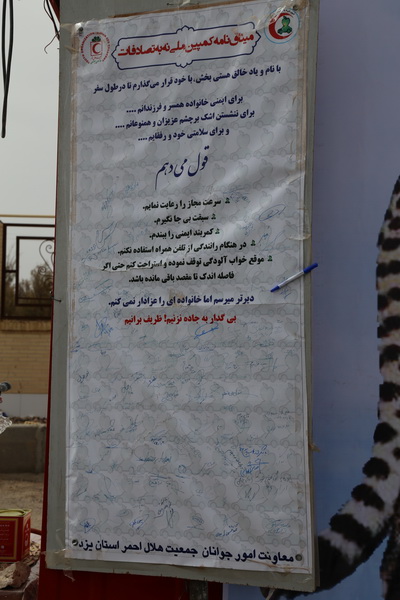 میثاق نامه کمپین ملی نه به تصادفات
با نام و یاد خالق هستی بخش، با خود قرار می‌گذارم تا در طول سفر
برای ایمنی خانواده همسر و فرزندانم ....
برای ننشستن اشک برچشم عزیزان و همنوعانم ....
و برای سلامتی خود و رفقایم ....
قول می دهم
سرعت مجاز را رعایت نمایم.
سبقت بی جا نگیرم.
کمربند ایمنی را ببندم.
در هنگام رانندگی از تلفن همراه استفاده نکنم.
موقع خواب آلودگی توقف نموده و استراحت کنم حتی اگر
فاصله اندک تا مقصد باقی مانده باشد.
دیرتر میرسم اما خانواده ای را عزادار نمی کنم.
بی گدار به جاده نزنیم! ظریف برانیم
معاونت امور جوانان جمعیت هلال احمر استان یزد